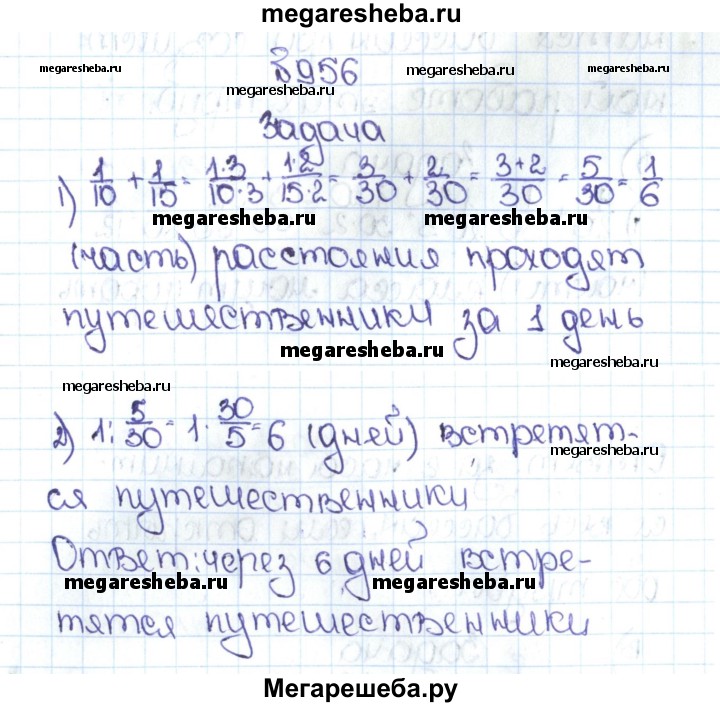 megaresheba.ru
№956
megaresheba.ru megaresheba.ru megaresheba.ru
megaresheba.ru
Задача
1) 1/10 + 1/15 = 1·3/10·3 + 1·2/15·2 = 3/30 + 2/30 = 3+2/30 = 5/30 = 1/6
megaresheba.ru megaresheba.ru
(часть) расстояния проходят
путешественники за 1 день
megaresheba.ru
megaresheba.ru
megaresheba.ru
2) 1 : 5/30 = 1 · 30/5 = 6 (дней) встретят-
megaresheba.ru
ся путешественники
Ответ: через 6 дней встре-
megaresheba.ru megaresheba.ru
тятся путешественники
Мегарешеба.ру